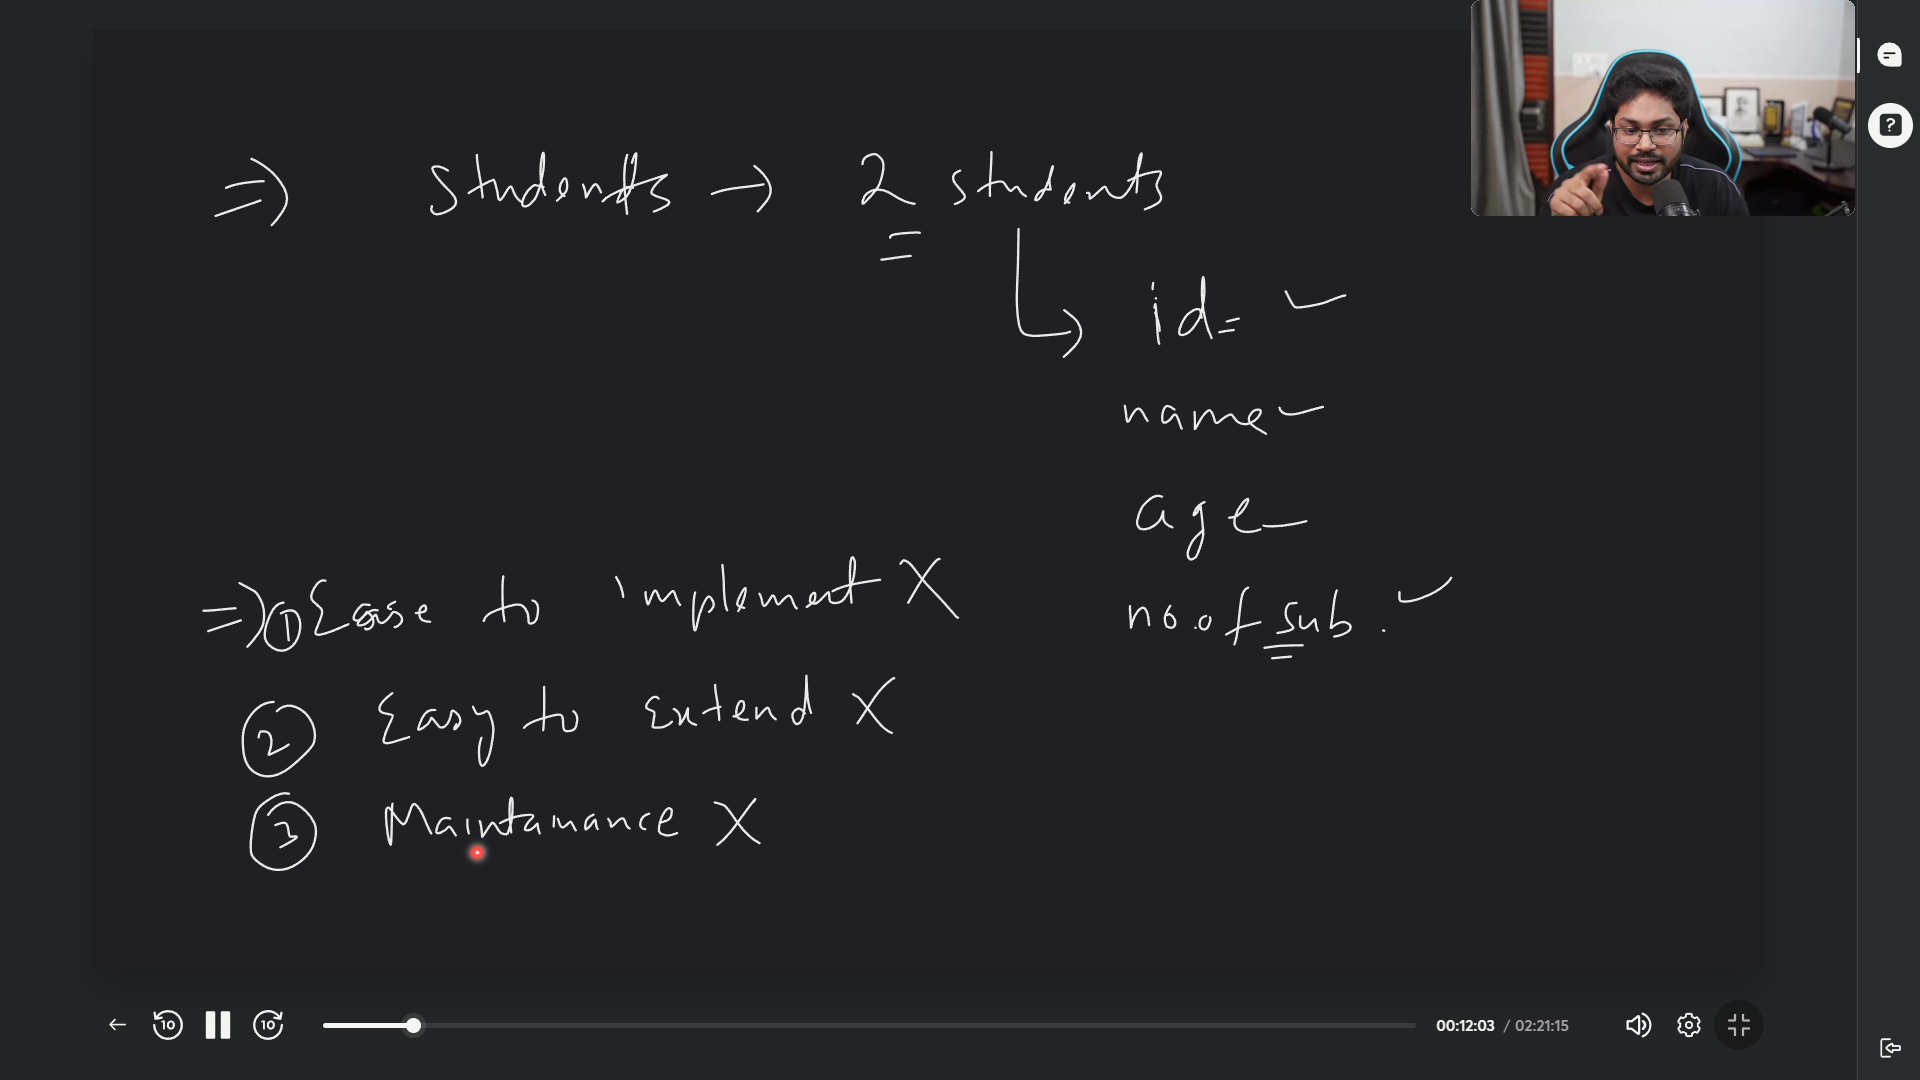 => Students → 2 students
id =
name
age
no. of sub.
=> 1 Ease to implement X
2 Easy to Extend X
3 Maintamance X
10 10 00:12:03 / 02:21:15
?